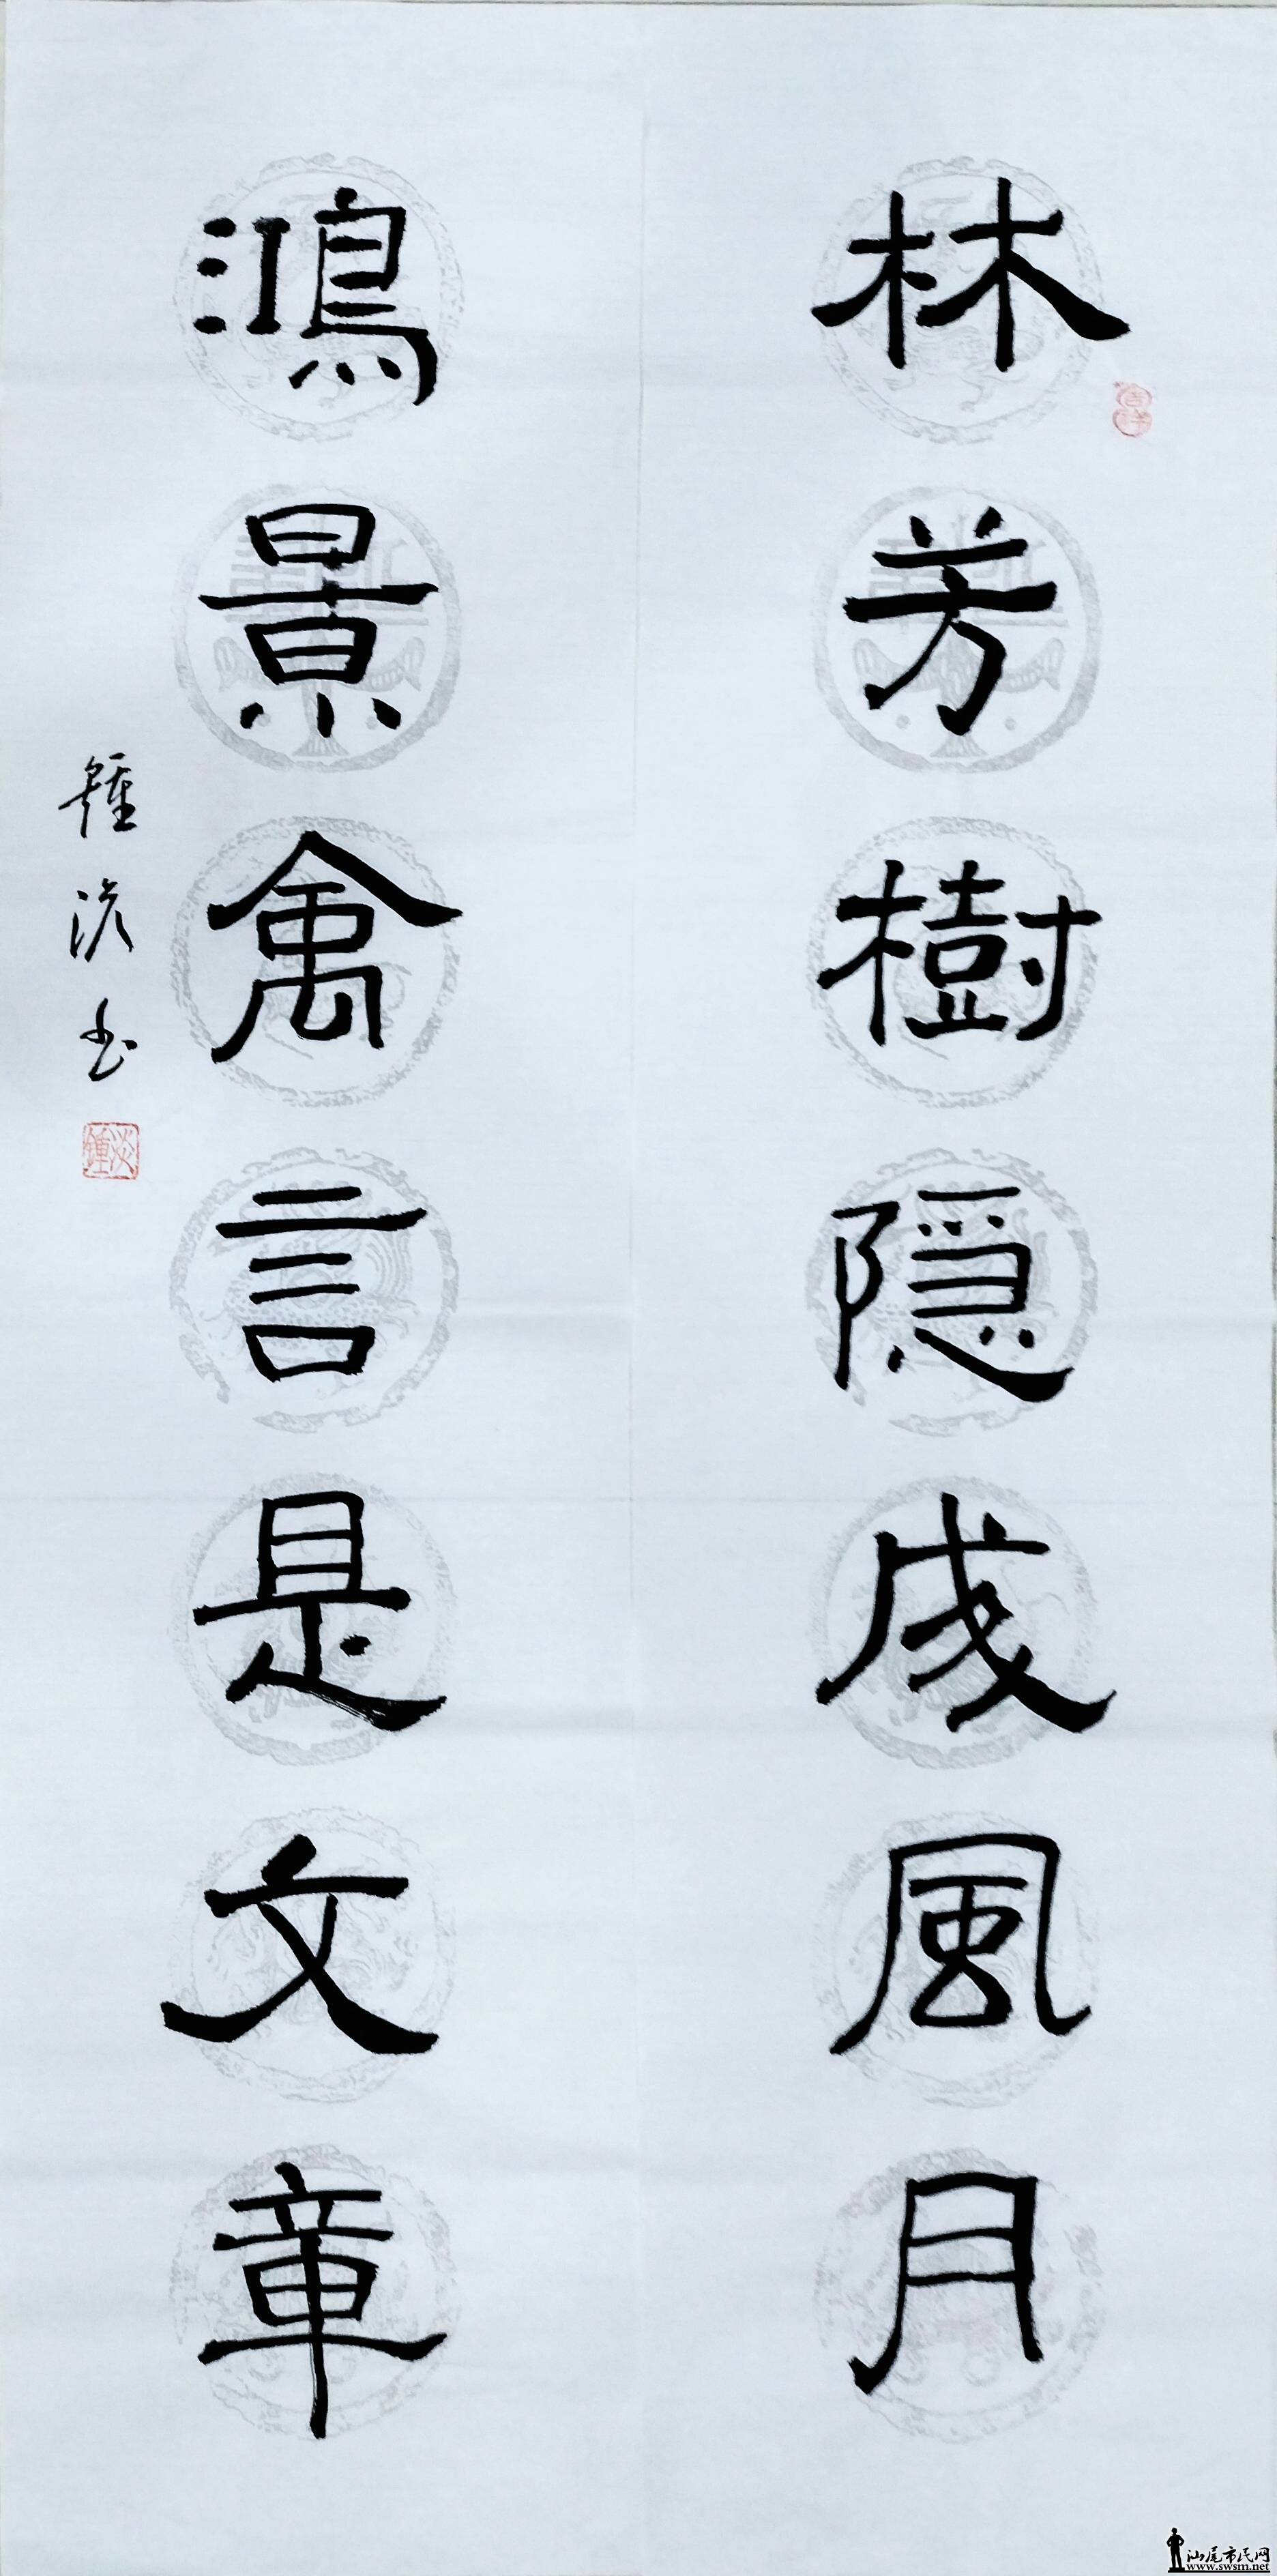 林芳樹隱成風月
鴻景禽言是文章
鍾浓书
吉祥
汕尾市民网
www.swsm.net